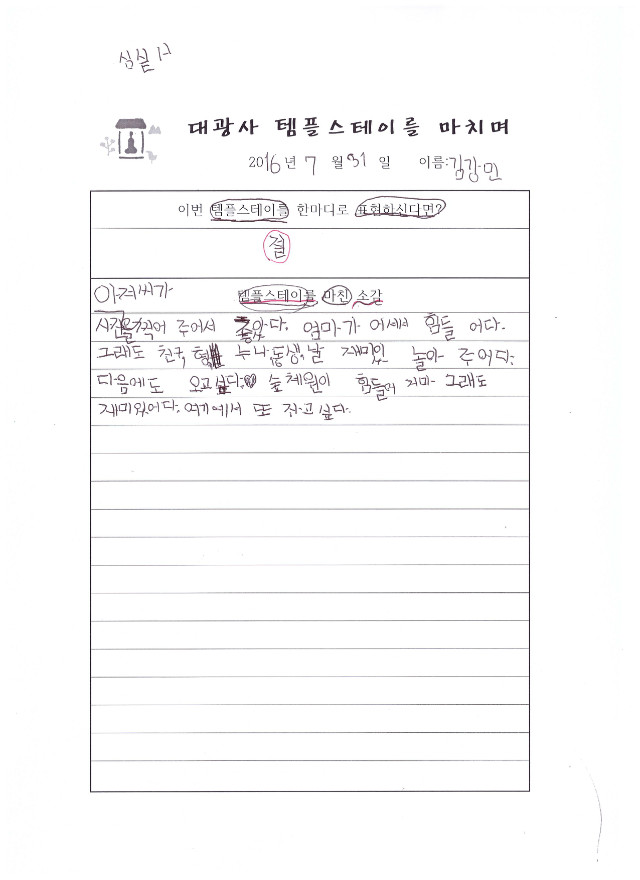 대광사 템플스테이를 마치며
2016년 7 월 31 일 이름:김강민
이번 템플스테이를 한마디로 표현하신다면?
절
템플스테이를 마친 소감
아저씨가
사진을찍어 주어서 좋았다. 엄마가 어세서 힘들 어다.
그래도 친국, 형, 누나,동생,날 재미있 놀아 주어다.
다음에도 오고싶다. 숲체원이 힘들어 지마 그래도
재미있어다. 여기에서 또 자고싶다.